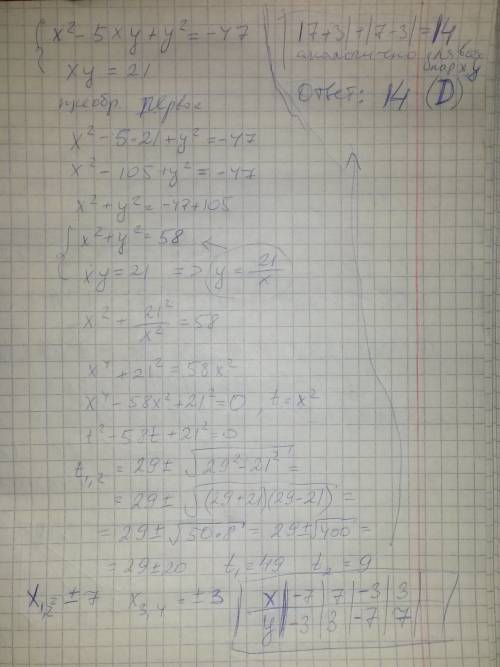 { x² - 5xy + y² = -47
xy = 21
преобр. первое
x² - 5·21 + y² = -47
x² - 105 + y² = -47
x² + y² = -47 + 105
{ x² + y² = 58
xy = 21 => y = 21/x
x² + 21²/x² = 58
x⁴ + 21² = 58x²
x⁴ - 58x² + 21² = 0, t = x²
t² - 58t + 21² = 0
t₁,₂ = 29 ± √(29² - 21²) =
= 29 ± √((29+21)(29-21)) =
= 29 ± √(50·8) = 29 ± √400 =
= 29 ± 20 t₁ = 49 t₂ = 9
x₁,₂ = ±7 x₃,₄ = ±3
x | -7 | 7 | -3 | 3
y | -3 | 3 | -7 | 7
|7+3| + |7-3| = 14
аналогично для всех
пар xy
Ответ: 14 (D)